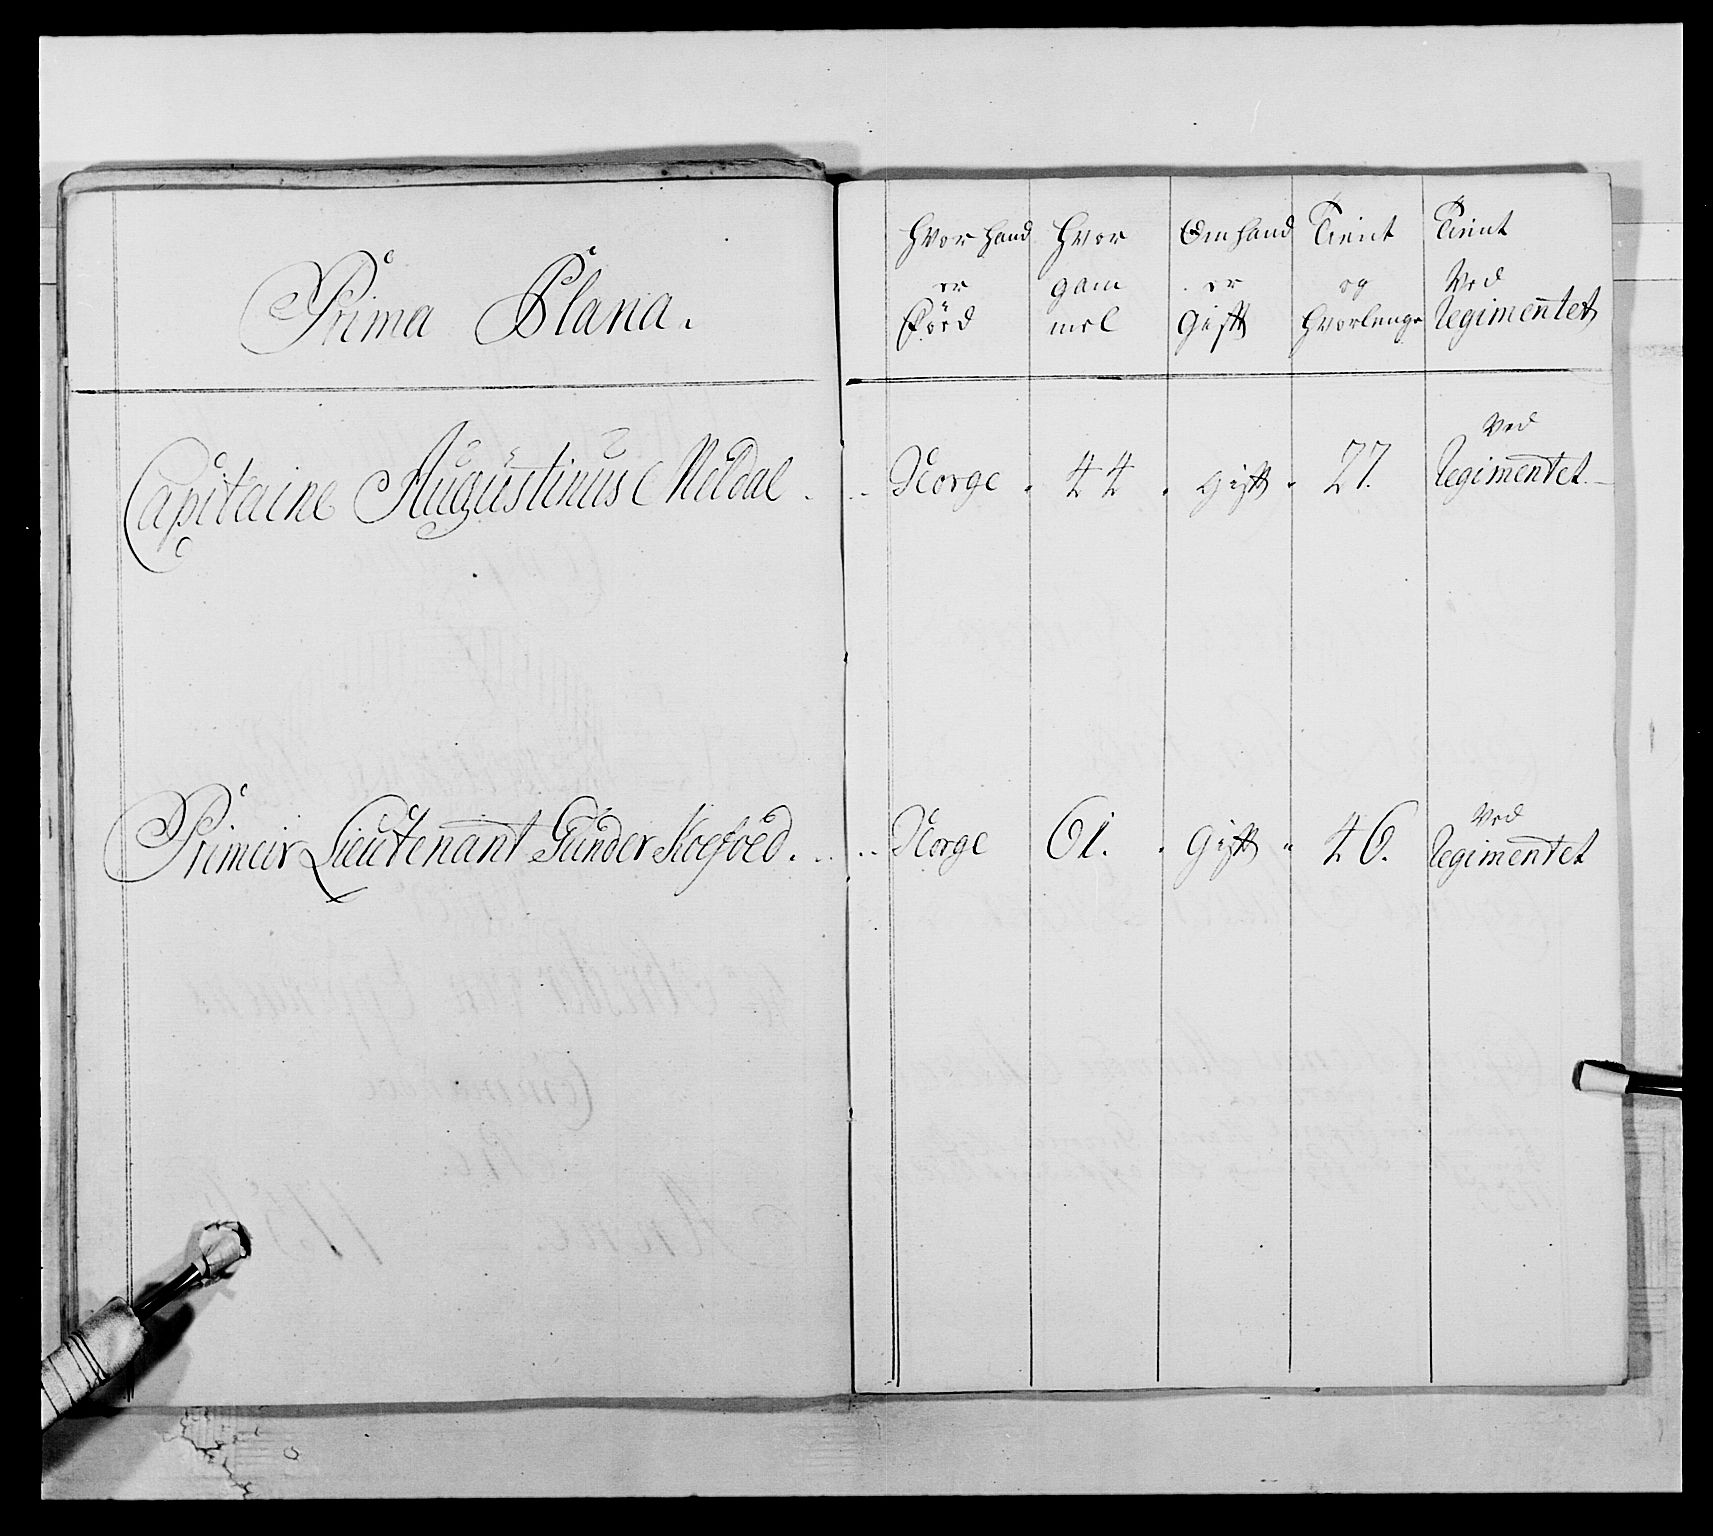 Prima Plana.
Hvor hand er Föed
Hvor gam mel
Om hand er Gift
Tient og hvorlenge
Tient Ved Regimentet
Capitaine Augustinus Meldal . . . Norge " 44 " gift " 27. Ved Regimentet.
Primeir Lieutenant Gunder Koefoed . . . . Norge 61. " gift " 46. Ved Regimentet